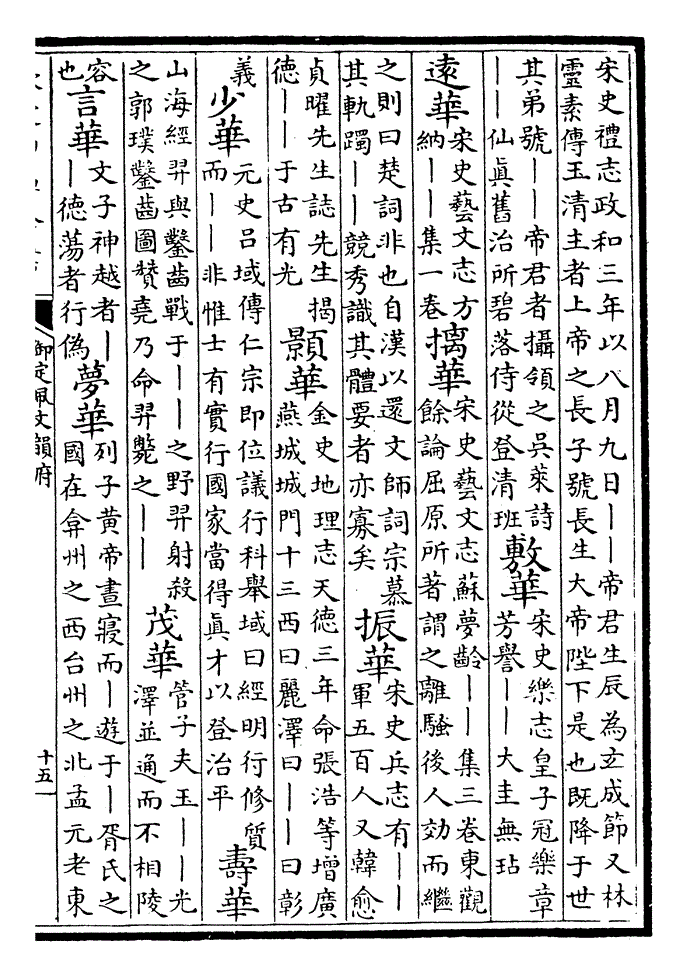 宋史禮志政和三年以八月九日——帝君生辰為玄成節又林
靈素傳玉清主者上帝之長子號長生大帝陛下是也既降于世
其弟號——帝君者攝領之吳萊詩
——仙真舊治所碧落侍從登清班
敷華
宋史樂志皇子冠樂章
芳譽——大圭無玷
遠華
宋史藝文志方
納——集一卷
摛華
宋史藝文志蘇夢齡——集三卷東觀
餘論屈原所著謂之離騷後人効而繼
之則曰楚詞非也自漢以還文師詞宗慕
其軌躅——競秀識其體要者亦寡矣
振華
宋史兵志有——
軍五百人又韓愈
貞曜先生誌先生揭
德——于古有光
顥華
金史地理志天德三年命張浩等增廣
燕城城門十三西曰麗澤曰——曰彰
義
少華
元史呂域傳仁宗即位議行科舉域曰經明行修質
而——非惟士有實行國家當得真才以登治平
壽華
山海經羿與鑿齒戰于——之野羿射殺
之郭璞鑿齒圖贊堯乃命羿斃之——
茂華
管子夫玉——光
澤並通而不相陵
容
也
言華
文子神越者—
—德蕩者行偽
夢華
列子黃帝晝寢而—遊于—胥氏之
國在弇州之西台州之北孟元老東
御定佩文韻府
十五